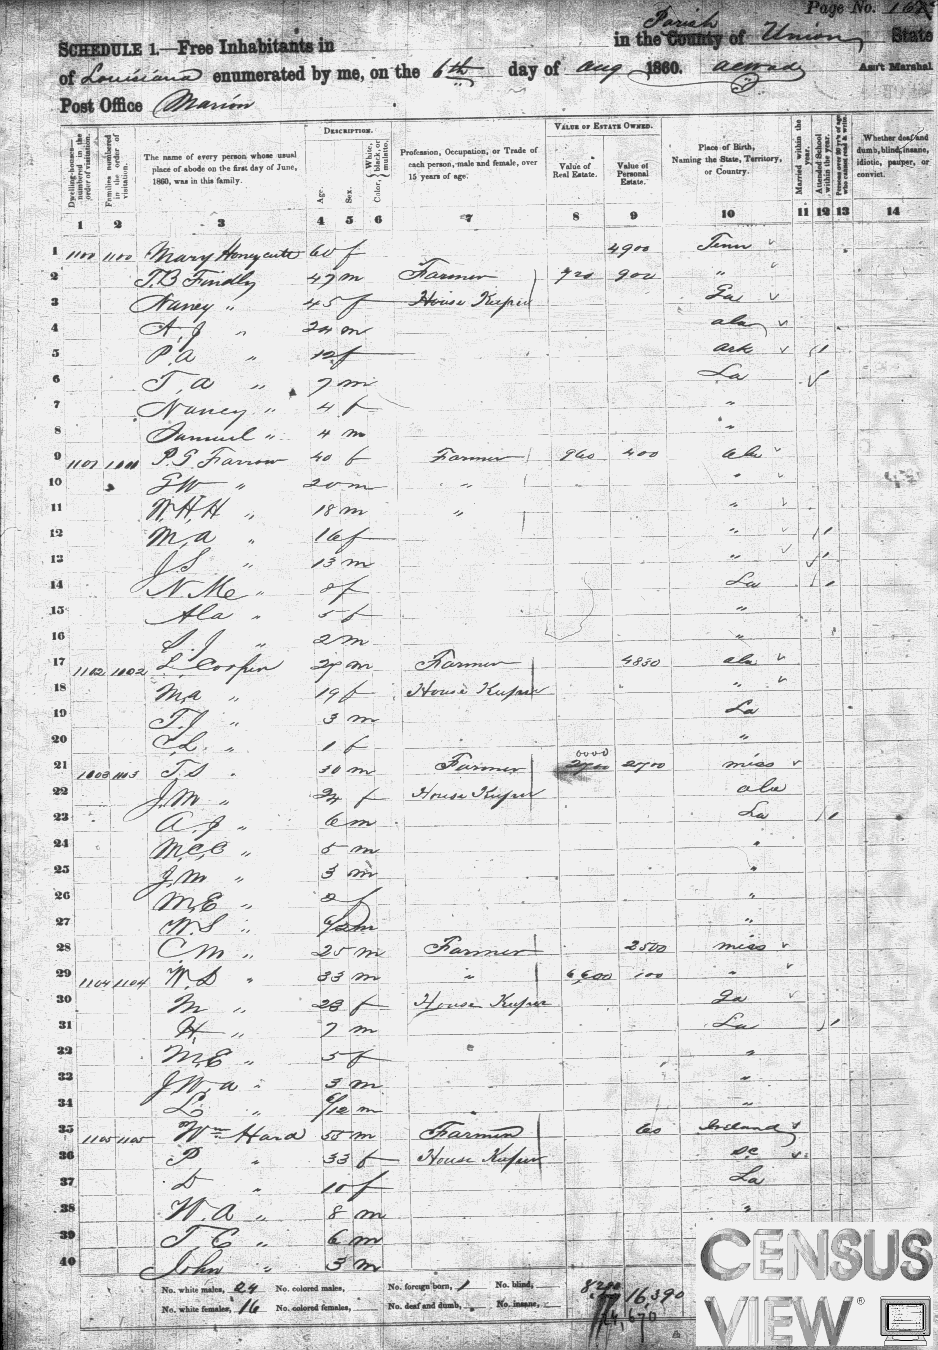 Page No. 167
SCHEDULE 1.—Free Inhabitants in in the County Parish of Union State
of Louisiana enumerated by me, on the 6th day of Aug 1860. Ass't Marshal
Post Office Marion
Dwelling-houses—numbered in the order of visitation.
Families numbered in the order of visitation.
The name of every person whose usual place of abode on the first day of June, 1860, was in this family.
DESCRIPTION.
Age.
Sex.
Color, White, black, or mulatto.
Profession, Occupation, or Trade of each person, male and female, over 15 years of age.
VALUE OF ESTATE OWNED.
Value of Real Estate.
Value of Personal Estate.
Place of Birth, Naming the State, Territory, or Country.
Married within the year.
Attended School within the year.
Persons over 20 y'rs of age who cannot read & write.
Whether deaf and dumb, blind, insane, idiotic, pauper, or convict.
1 2 3 4 5 6 7 8 9 10 11 12 13 14
1 1100 1100 Mary Honeycutt 60 f 4900 Tenn
2 T.B Findly 47 m Farmer 720 900 "
3 Nancy " 45 f House Keeper Ga
4 A. J " 24 m ala
5 P. A " 12 f ark 1
6 T. A " 7 m La
7 Nancy " 4 f "
8 Samuel " 4 m "
9 1101 P. G. Farrow 40 f Farmer 960 400 ala
10 G W " 20 m " "
11 W. H. H " 18 m " "
12 M, a " 16 f " 1
13 J S " 13 m " 1
14 N. Mc " 8 f La 1
15 Ala " 5 f "
16 S. J " 2 m "
17 1102 1102 L. Cooper 27 m Farmer 4830 ala
18 M, a " 19 f House Keeper "
19 T. J " 3 m La
20 C L. " 1 f "
21 1103 1103 T. S " 30 m Farmer 2700 miss
22 J. M " 24 f House Keeper ala
23 A J " 6 m La 1
24 M, C, C " 5 m "
25 J, M " 3 m "
26 M, E " 2 f "
27 W. S " 6/12 m "
28 C. M " 25 m Farmer 2500 miss
29 1104 1104 W. D " 33 m " 6,600 100 "
30 M " 23 f House Keeper Ga
31 H, " 7 m La 1
32 M, E " 5 f "
33 J, W, a " 3 m "
34 L " 6/12 m "
35 1105 1105 Wm Hard 55 m Farmer 60 Ireland
36 P " 33 f House Keeper SC
37 D " 10 f La
38 W. A " 8 m "
39 T C " 6 m
40 John " 3 m
No. white males, 24 No. colored males, No. foreign born, 1 No. blind,
No. white females, 16 No. colored females, No. deaf and dumb, No. insane,
16,390
CENSUS
VIEW®